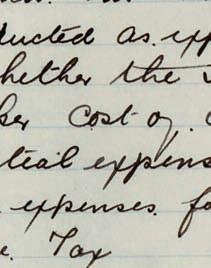 ducted as exp
whether the
cost of
tial expens
expenses fo
Tax